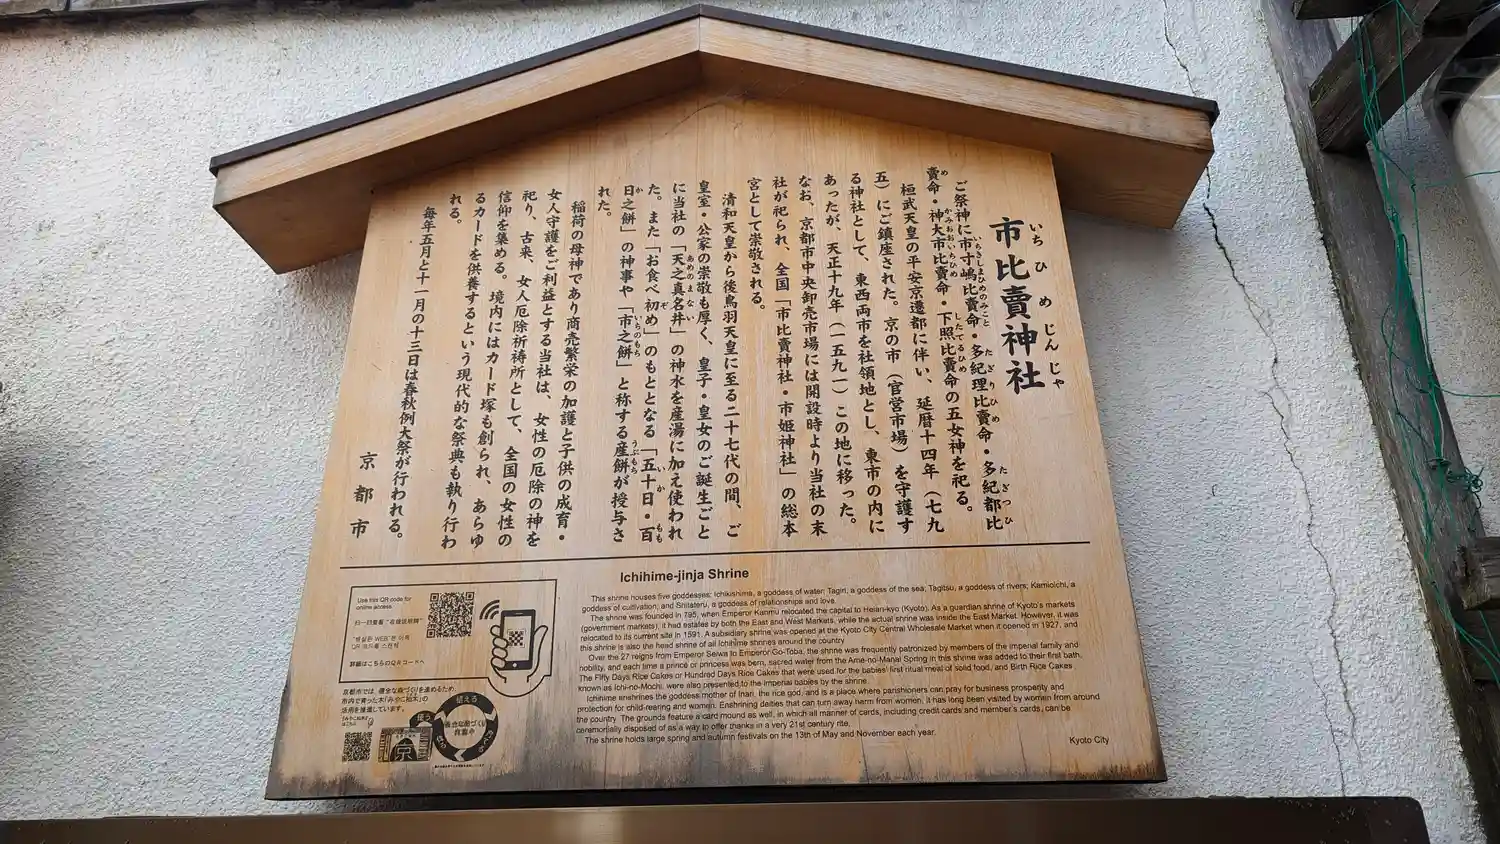 市比賣神社
いち ひ め じん じゃ
ご祭神に市寸嶋比賣命・多紀理比賣命・多紀都比
賣命・神大市比賣命・下照比賣命の五女神を祀る。
桓武天皇の平安京遷都に伴い、延暦十四年（七九
五）にご鎮座された。京の市（官営市場）を守護す
る神社として、東西両市を社領地とし、東市の内に
あったが、天正十九年（一五九一）この地に移った。
なお、京都市中央卸売市場には開設時より当社の末
社が祀られ、全国「市比賣神社・市姫神社」の総本
宮として崇敬される。
清和天皇から後鳥羽天皇に至る二十七代の間、ご
皇室・公家の崇敬も厚く、皇子・皇女のご誕生ごと
に当社の「天之真名井」の神水を産湯に加え使われ
た。また「お食べ初め」のもととなる「五十日・百
日之餅」の神事や「市之餅」と称する産餅が授与さ
れた。
稲荷の母神であり商売繁栄の加護と子供の成育・
女人守護をご利益とする当社は、女性の厄除の神を
祀り、古来、女人厄除祈祷所として、全国の女性の
信仰を集める。境内にはカード塚も創られ、あらゆ
るカードを供養するという現代的な祭典も執り行わ
れる。
毎年五月と十一月の十三日は春秋例大祭が行われる。
京都市
Ichihime-jinja Shrine
This shrine houses five goddesses: Ichikishima, a goddess of water; Tagiri, a goddess of the sea; Tagitsu, a goddess of rivers; Kamioichi, a
goddess of cultivation; and Shitateru, a goddess of relationships and love.
The shrine was founded in 795, when Emperor Kanmu relocated the capital to Heian-kyo (Kyoto). As a guardian shrine of Kyoto's markets
(government markets), it had estates by both the East and West Markets, while the actual shrine was inside the East Market. However, it was
relocated to its current site in 1591. A subsidiary shrine was opened at the Kyoto City Central Wholesale Market when it opened in 1927, and
this shrine is also the head shrine of all Ichihime shrines around the country.
Over the 27 reigns from Emperor Seiwa to Emperor Go-Toba, the shrine was frequently patronized by members of the imperial family and
nobility, and each time a prince or princess was born, sacred water from the Ame-no-Manai Spring in this shrine was added to their first bath.
The Fifty Days Rice Cakes or Hundred Days Rice Cakes that were used for the babies' first ritual meal of solid food, and Birth Rice Cakes
known as Ichi-no-Mochi, were also presented to the imperial babies by the shrine.
Ichihime enshrines the goddess mother of Inari, the rice god, and is a place where parishioners can pray for business prosperity and
protection for child-rearing and women. Enshrining deities that can turn away harm from women, it has long been visited by women from around
the country. The grounds feature a card mound as well, in which all manner of cards, including credit cards and member's cards, can be
ceremonially disposed of as a way to offer thanks in a very 21st century rite.
The shrine holds large spring and autumn festivals on the 13th of May and November each year.
Kyoto City
Use this QR code for
online access
扫一扫查看"在线说明牌"
QR 코드를 스캔해
詳細はこちらのQRコードへ
京都市では、健全な森づくりを進めるため、
市内で育った木「みやこ杣木」の
活用を推進しています。